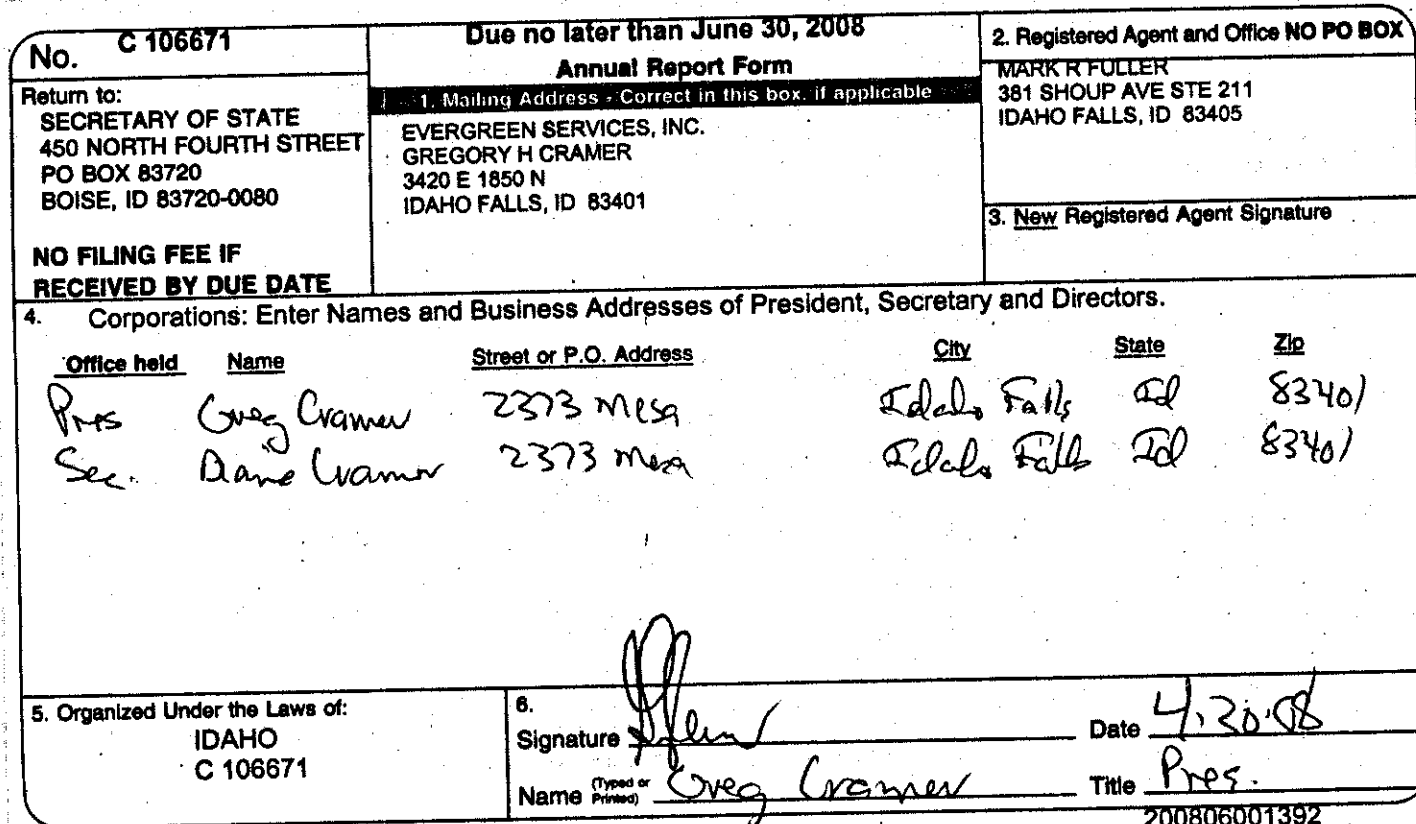 No. C 106671
Return to:
SECRETARY OF STATE
450 NORTH FOURTH STREET
PO BOX 83720
BOISE, ID 83720-0080
NO FILING FEE IF
RECEIVED BY DUE DATE
Due no later than June 30, 2008
Annual Report Form
1. Mailing Address - Correct in this box, if applicable
EVERGREEN SERVICES, INC.
GREGORY H CRAMER
3420 E 1850 N
IDAHO FALLS, ID 83401
2. Registered Agent and Office NO PO BOX
MARK R FULLER
381 SHOUP AVE STE 211
IDAHO FALLS, ID 83405
3. New Registered Agent Signature
4. Corporations: Enter Names and Business Addresses of President, Secretary and Directors.
Office held Name Street or P.O. Address City State Zip
Pres Greg Cramer 2373 Mesa Idaho Falls Id 83401
Sec. Diane Cramer 2373 Mesa Idaho Falls Id 83401
5. Organized Under the Laws of:
IDAHO
C 106671
6.
Signature Date 4.30.08
Name (Typed or Printed) Greg Cramer Title Pres.
200806001392